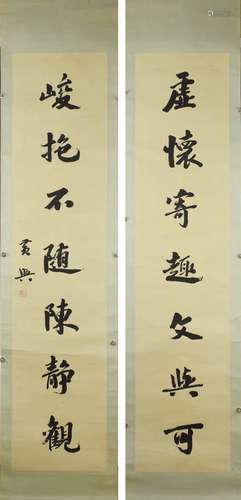 虛懷寄趣文與可
峻抱不随陳静觀
黃興